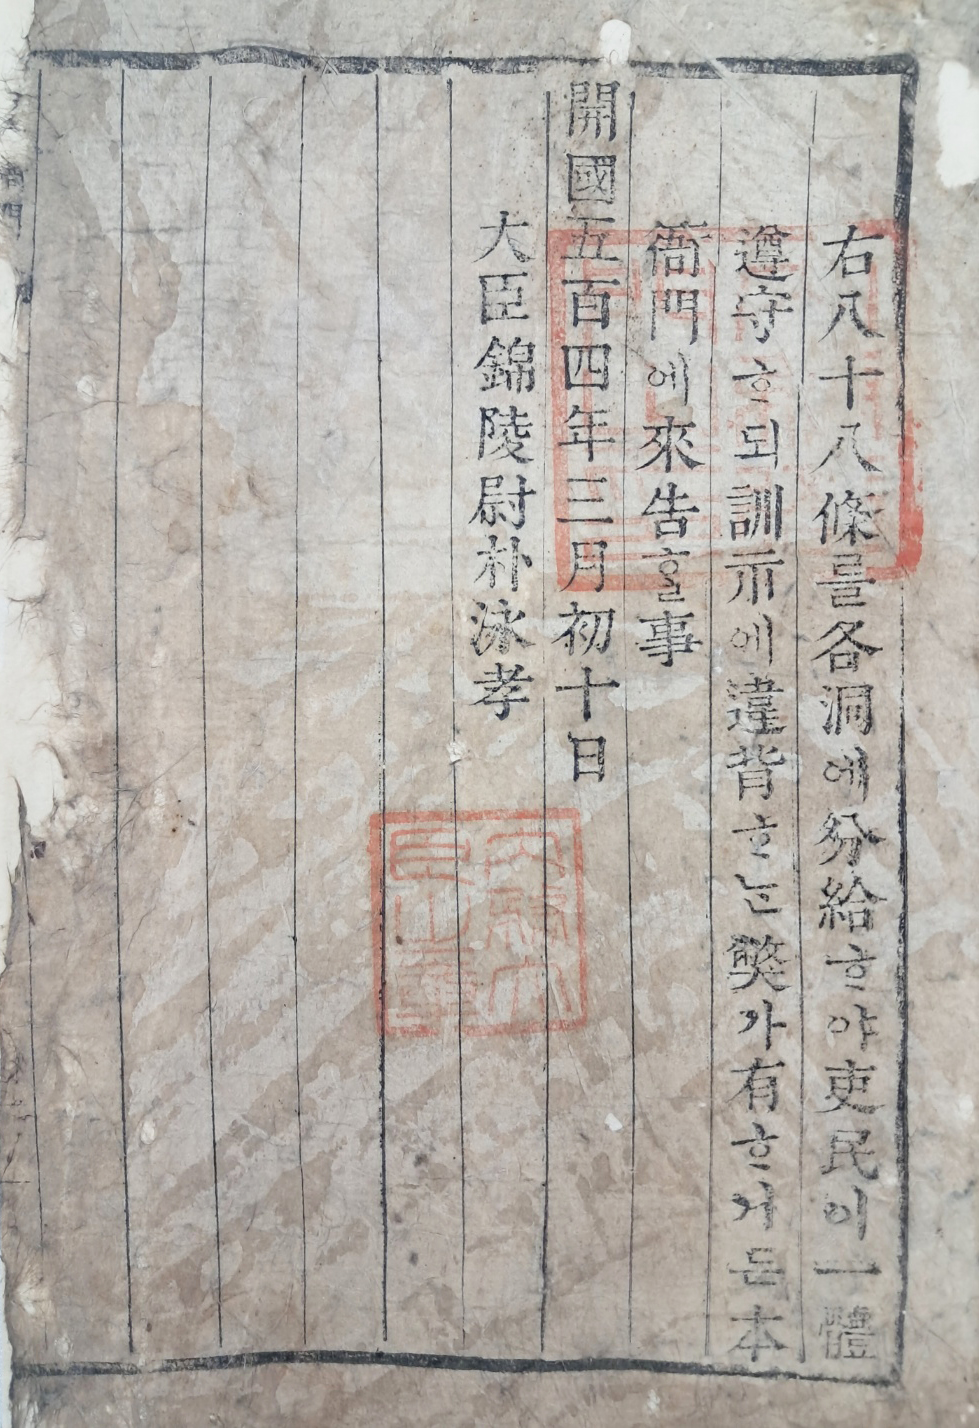 右八十八條를各洞에分給ᄒᆞ야吏民이一體
遵守ᄒᆞ되訓示에違背ᄒᆞᄂᆞᆫ獘가有ᄒᆞ거든本
衙門에來告ᄒᆞᆯ事
開國五百四年三月初十日
大臣錦陵尉朴泳孝